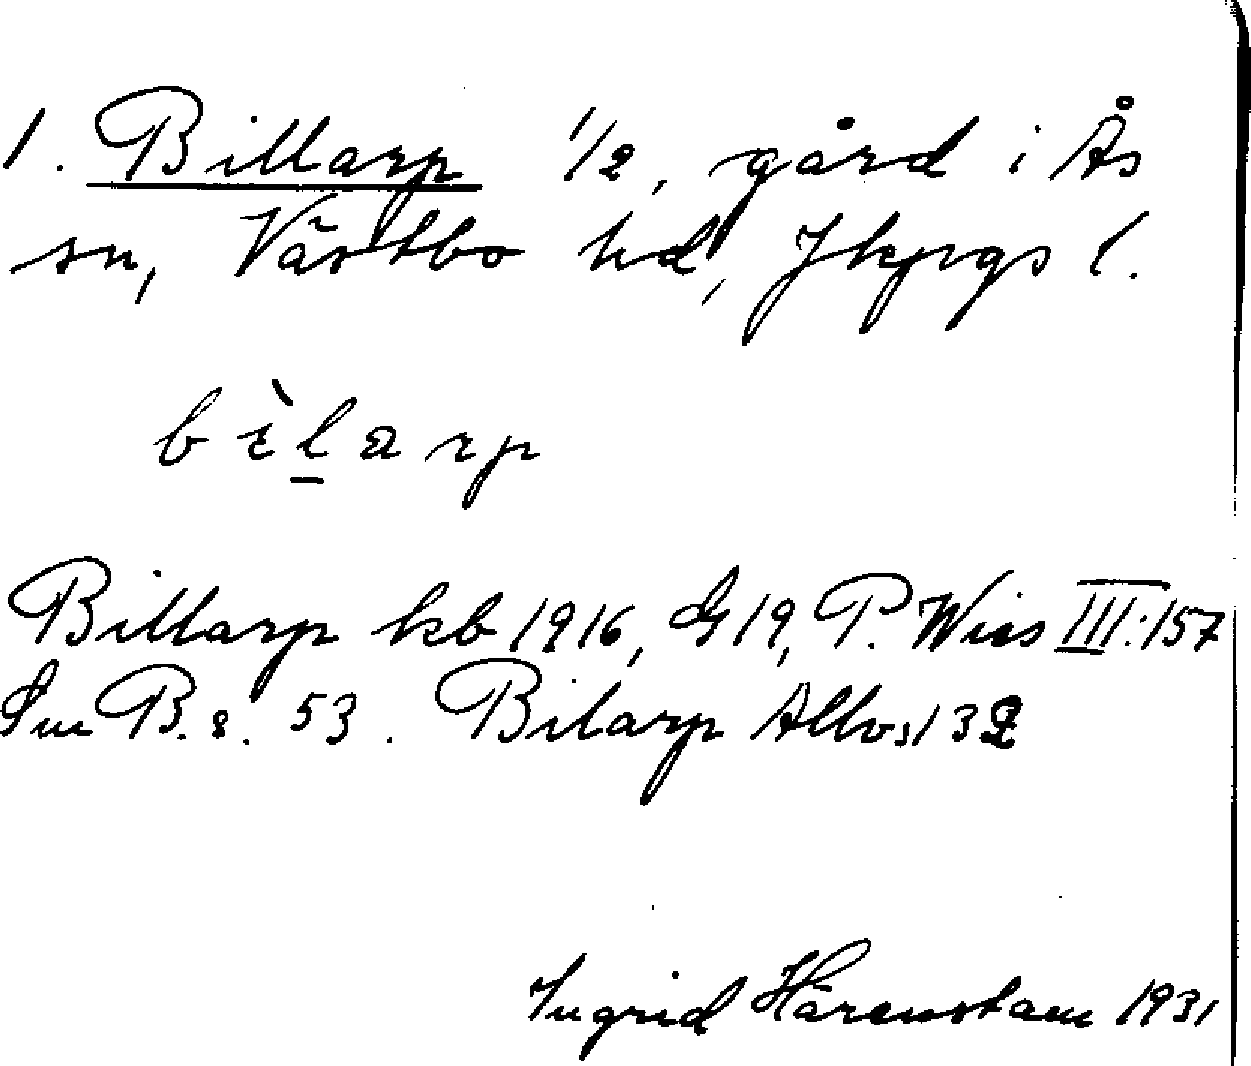 1. Billarp 1/2, gård i Ås
sn, Västbo hd, Jkpgs l.
bìlarp
Billarp kb 1916, G19, P. Wies III:157
Sm B. s. 53. Bilarp Allvs 132
Ingrid Härenstam 1931